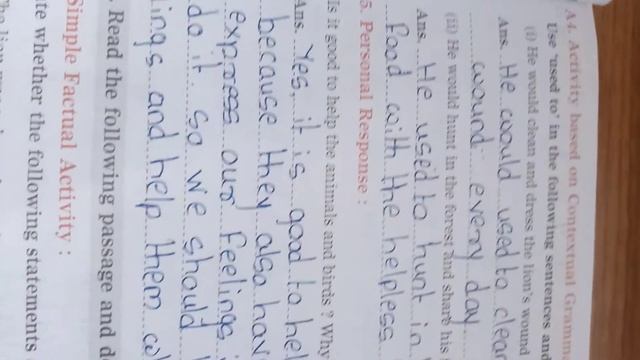 A4. Activity based on Contextual Gramm
Use 'used to' in the following sentences an
(i) He would clean and dress the lion's wound
Ans. He would used to clean
wound every day
(ii) He would hunt in the forest and share his
Ans. He used to hunt in
food with the helpless
5. Personal Response :
Is it good to help the animals and birds ? Why
Ans. Yes, it is good to hel
because they also hav
express our feelings
do it. so we should
ings and help them
Read the following passage and d
Simple Factual Activity :
te whether the following statements